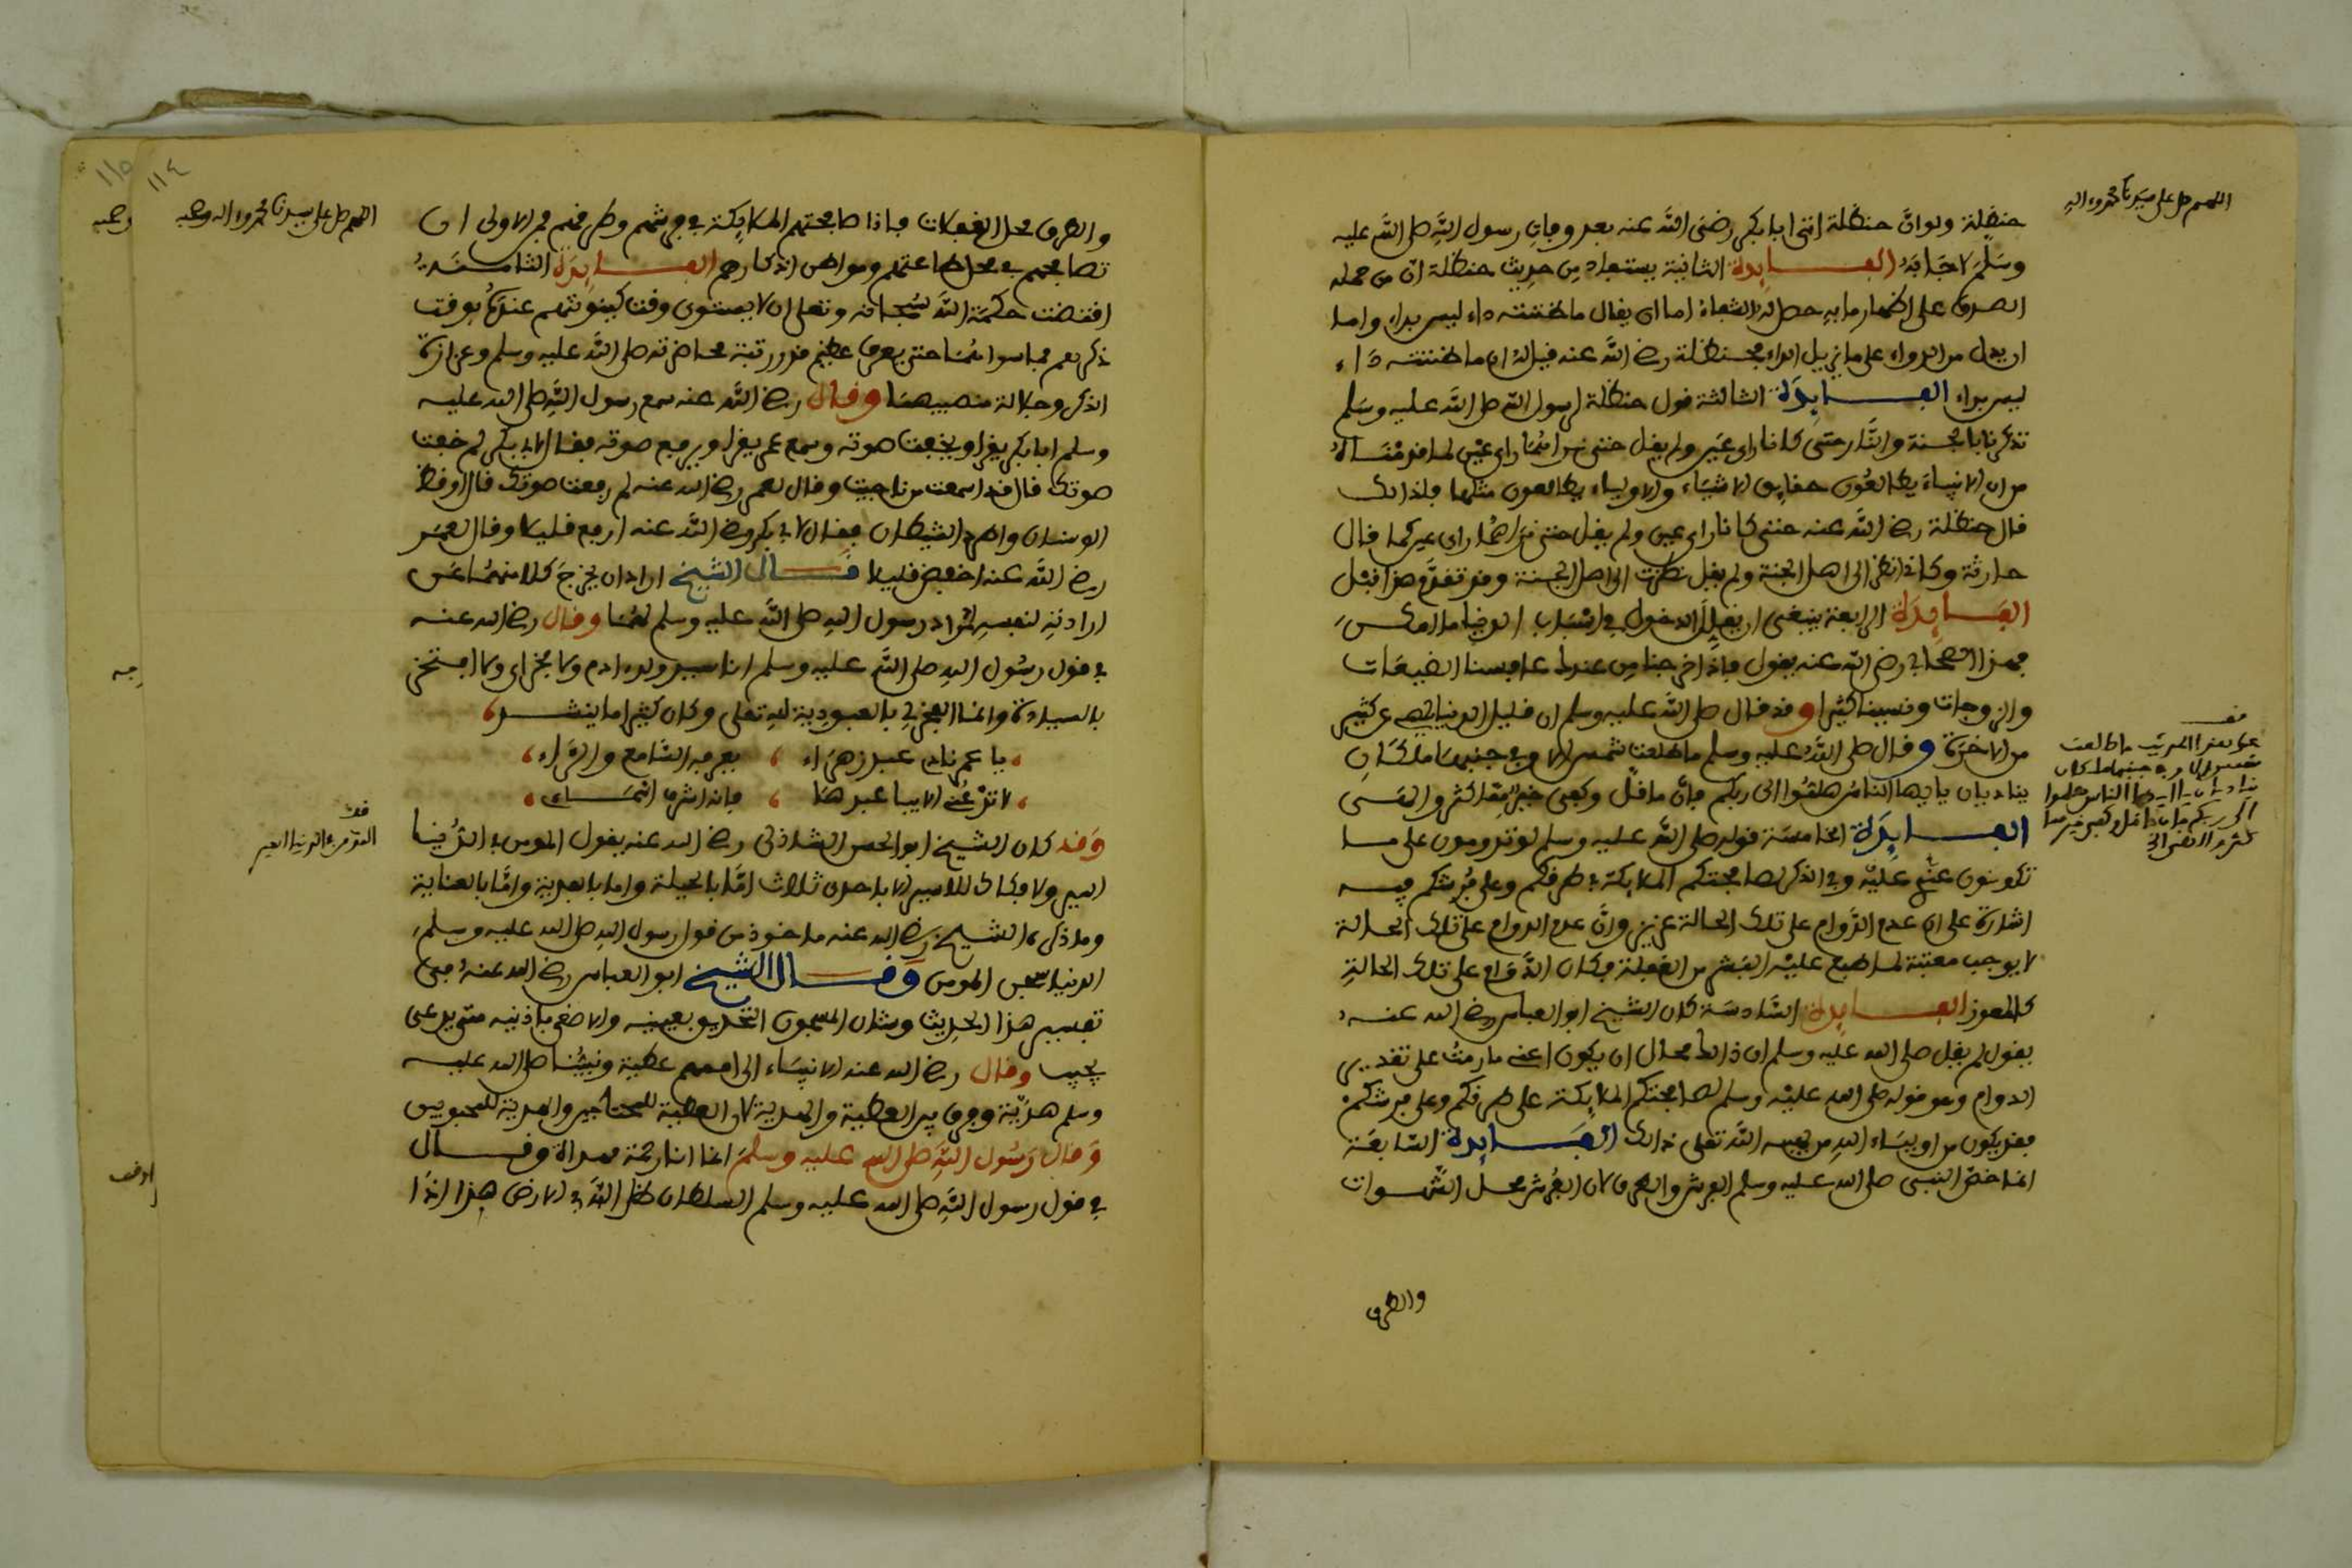 اللهم صل على سيدنا محمد واله
حنظلة ولو ان حنظلة اتى ابا بكر رضى الله عنه بعد وفات رسول الله صلى الله عليه
وسلم لاجابه الفــايدة الثانية يستفاد من حديث حنظلة ان من حمله
الصدق على اظهار ما به حصل له الشفاء اما ان يقال ما ظننته داء ليس بداء واما
ان يدل من الدواء على ما يزيل الداء فحنظلة رضي الله عنه قيل له ان ما ظننته داء
ليس بداء الفــايدة الثالثة قول حنظلة لرسول الله صلى الله عليه وسلم
تذكرنا بالجنة والنار حتى كانا راي عين ولم يقل حتى نراهما راي عين لما قدمناه
من ان الانبياء يطالعون حقايق الاشياء والاولياء يطالعون مثلها فلذالك
قال حنظلة رضي الله عنه حتى كانا راي عين ولم يقل حتى نراهما راي عين كما قال
حارثة وكاني انظر الى اهل الجنة ولم يقل نظرت الى اهل الجنة وقد تقدم هذا قبل
الفــايدة الرابعة ينبغي ان يقلل الدخول في اسباب الدنيا ما امكن
فهذا الصحابي رضي الله عنه يقول فاذا خرجنا من عندك عافسنا الضيعات
والزوجات ونسينا كثيرا وقد قال صلى الله عليه وسلم ان قليل الدنيا يلهي عن كثير
من الاخرة وقال صلى الله عليه وسلم ما طلعت شمس الا وبجنبيها ملكان
يناديان يا ايها الناس هلموا الى ربكم فان ما قل وكفى خير مما كثر والهى
الفــايدة الخامسة قوله صلى الله عليه وسلم لو تدومون على ما
تكونون عليه وفي الذكر لصافحتكم الملايكة في طرقكم وعلى فرشكم فيه
اشارة على ان عدم الدوام على تلك الحالة عزيز وان عدم الدوام على تلك الحالة
لا يوجب معتبة لما طبع عليه البشر من الغفلة فكان الدوام على تلك الحالة
كالمعوز الفــايدة السادسة كان الشيخ ابو العباس رضي الله عنه
يقول لم يقل صلى الله عليه وسلم ان ذالك محال ان يكون اعني ما رمت على تقدير
الدوام وهو قوله صلى الله عليه وسلم لصافحتكم الملايكة على طرقكم وعلى فرشكم
فقد يكون من اولياء الله من يهبه الله تعلى ذالك الفــايدة السابعة
انما خص النبي صلى الله عليه وسلم الفرش والطرق لان الفرش محل الشهوات
والطرق
قف
على هذا الحديث ما طلعت
شمس الا وبجنبيها ملكان
يناديان يا ايها الناس هلموا
الى ربكم فان ما قل وكفى خير مما
كثر والهى
١١٤
١١٥
اللهم صل على سيدنا محمد واله وصحبه
وصحبه
والطرق محل الغفلات فاذا صافحتهم الملايكة في فرشهم وطرقهم فمن الاولى ان
تصافحهم في محل طاعتهم ومواطن اذكارهم الفــايدة الثامنة
اقتضت حكمة الله سبحانه وتعلى ان لا يستوى وقت كينونتهم عنده بوقت
ذكرهم فيما سواه حتى يعرف عظيم قدر رتبة محاضرته صلى الله عليه وسلم وعزازة
الذكر وجلالة منصبهما وقال رضي الله عنه سمع رسول الله صلى الله عليه
وسلم ابا بكر يقرا ويخفت صوته وسمع عمر يقرا ويرفع صوته فقال لابي بكر لم خفت
صوتك قال قد اسمعت من ناجيت وقال لعمر رضي الله عنه لم رفعت صوتك قال اوقظ
الوسنان واطرد الشيطان فقال لابي بكر رضي الله عنه ارفع قليلا وقال لعمر
رضي الله عنه اخفض قليلا قــال الشيخ اراد ان يخرج كلا منهما عن
ارادته لنفسه لمراد رسول الله صلى الله عليه وسلم لهما وقال رضي الله عنه
في قول رسول الله صلى الله عليه وسلم انا سيد ولد ادم ولا فخر اى ولا افتخر
بالسيادة وانما الفخر لي بالعبودية لله تعلى وكان كثيرا ما ينشد
يا عمرناد عبد زهراء ، يعرفه السامع والراء
لا تدعني الا بيا عبدها ، فانه اشرف اسماء
وقد كان الشيخ ابو الحسن الشاذلى رضي الله عنه يقول المومن في الدنيا
اسير ولا فكاك للاسير الا باحدى ثلاث اما بالحيلة واما بالفدية واما بالعناية
وما ذكره الشيخ رضي الله عنه ماخوذ من قول رسول الله صلى الله عليه وسلم
الدنيا سجن المومن وقــال الشيخ ابو العباس رضي الله عنه في
تفسير هذا الحديث وشان المسجون التحديق بعينيه والاصغى باذنيه متى يدعى
يجيب وقال رضي الله عنه الانبياء الى اممهم عطية ونبينا صلى الله عليه
وسلم هدية وفرق بين العطية والهدية لان العطية للمحتاجين والهدية للمحبوبين
وقال رسول الله صلى الله عليه وسلم انما انا رحمة مهداة وقــال
في قول رسول الله صلى الله عليه وسلم السلطان ظل الله في الارض هذا اذا
قف
المومن في الدنيا اسير